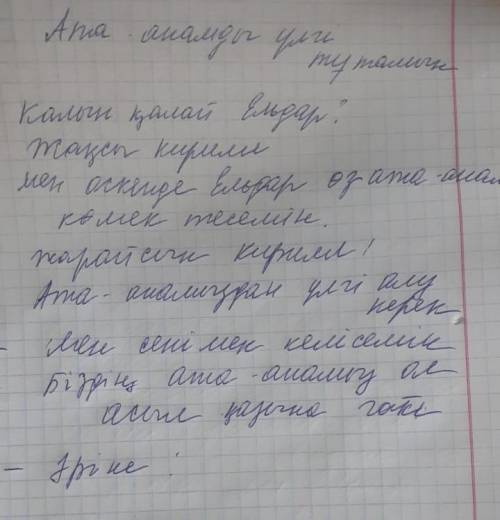 Ата-анамды үлгі
тұтамын
Калын қалай Ельдар?
Жақсы кирилл
мен өскенде Ельдар өз ата-анам
көмек
жарайсын кирилл!
Ата-анамыздан үлгі алу
керек
- Мен сенімен келісемін
Біздің ата-анамыз ол
асыл қазына
- Әріне!